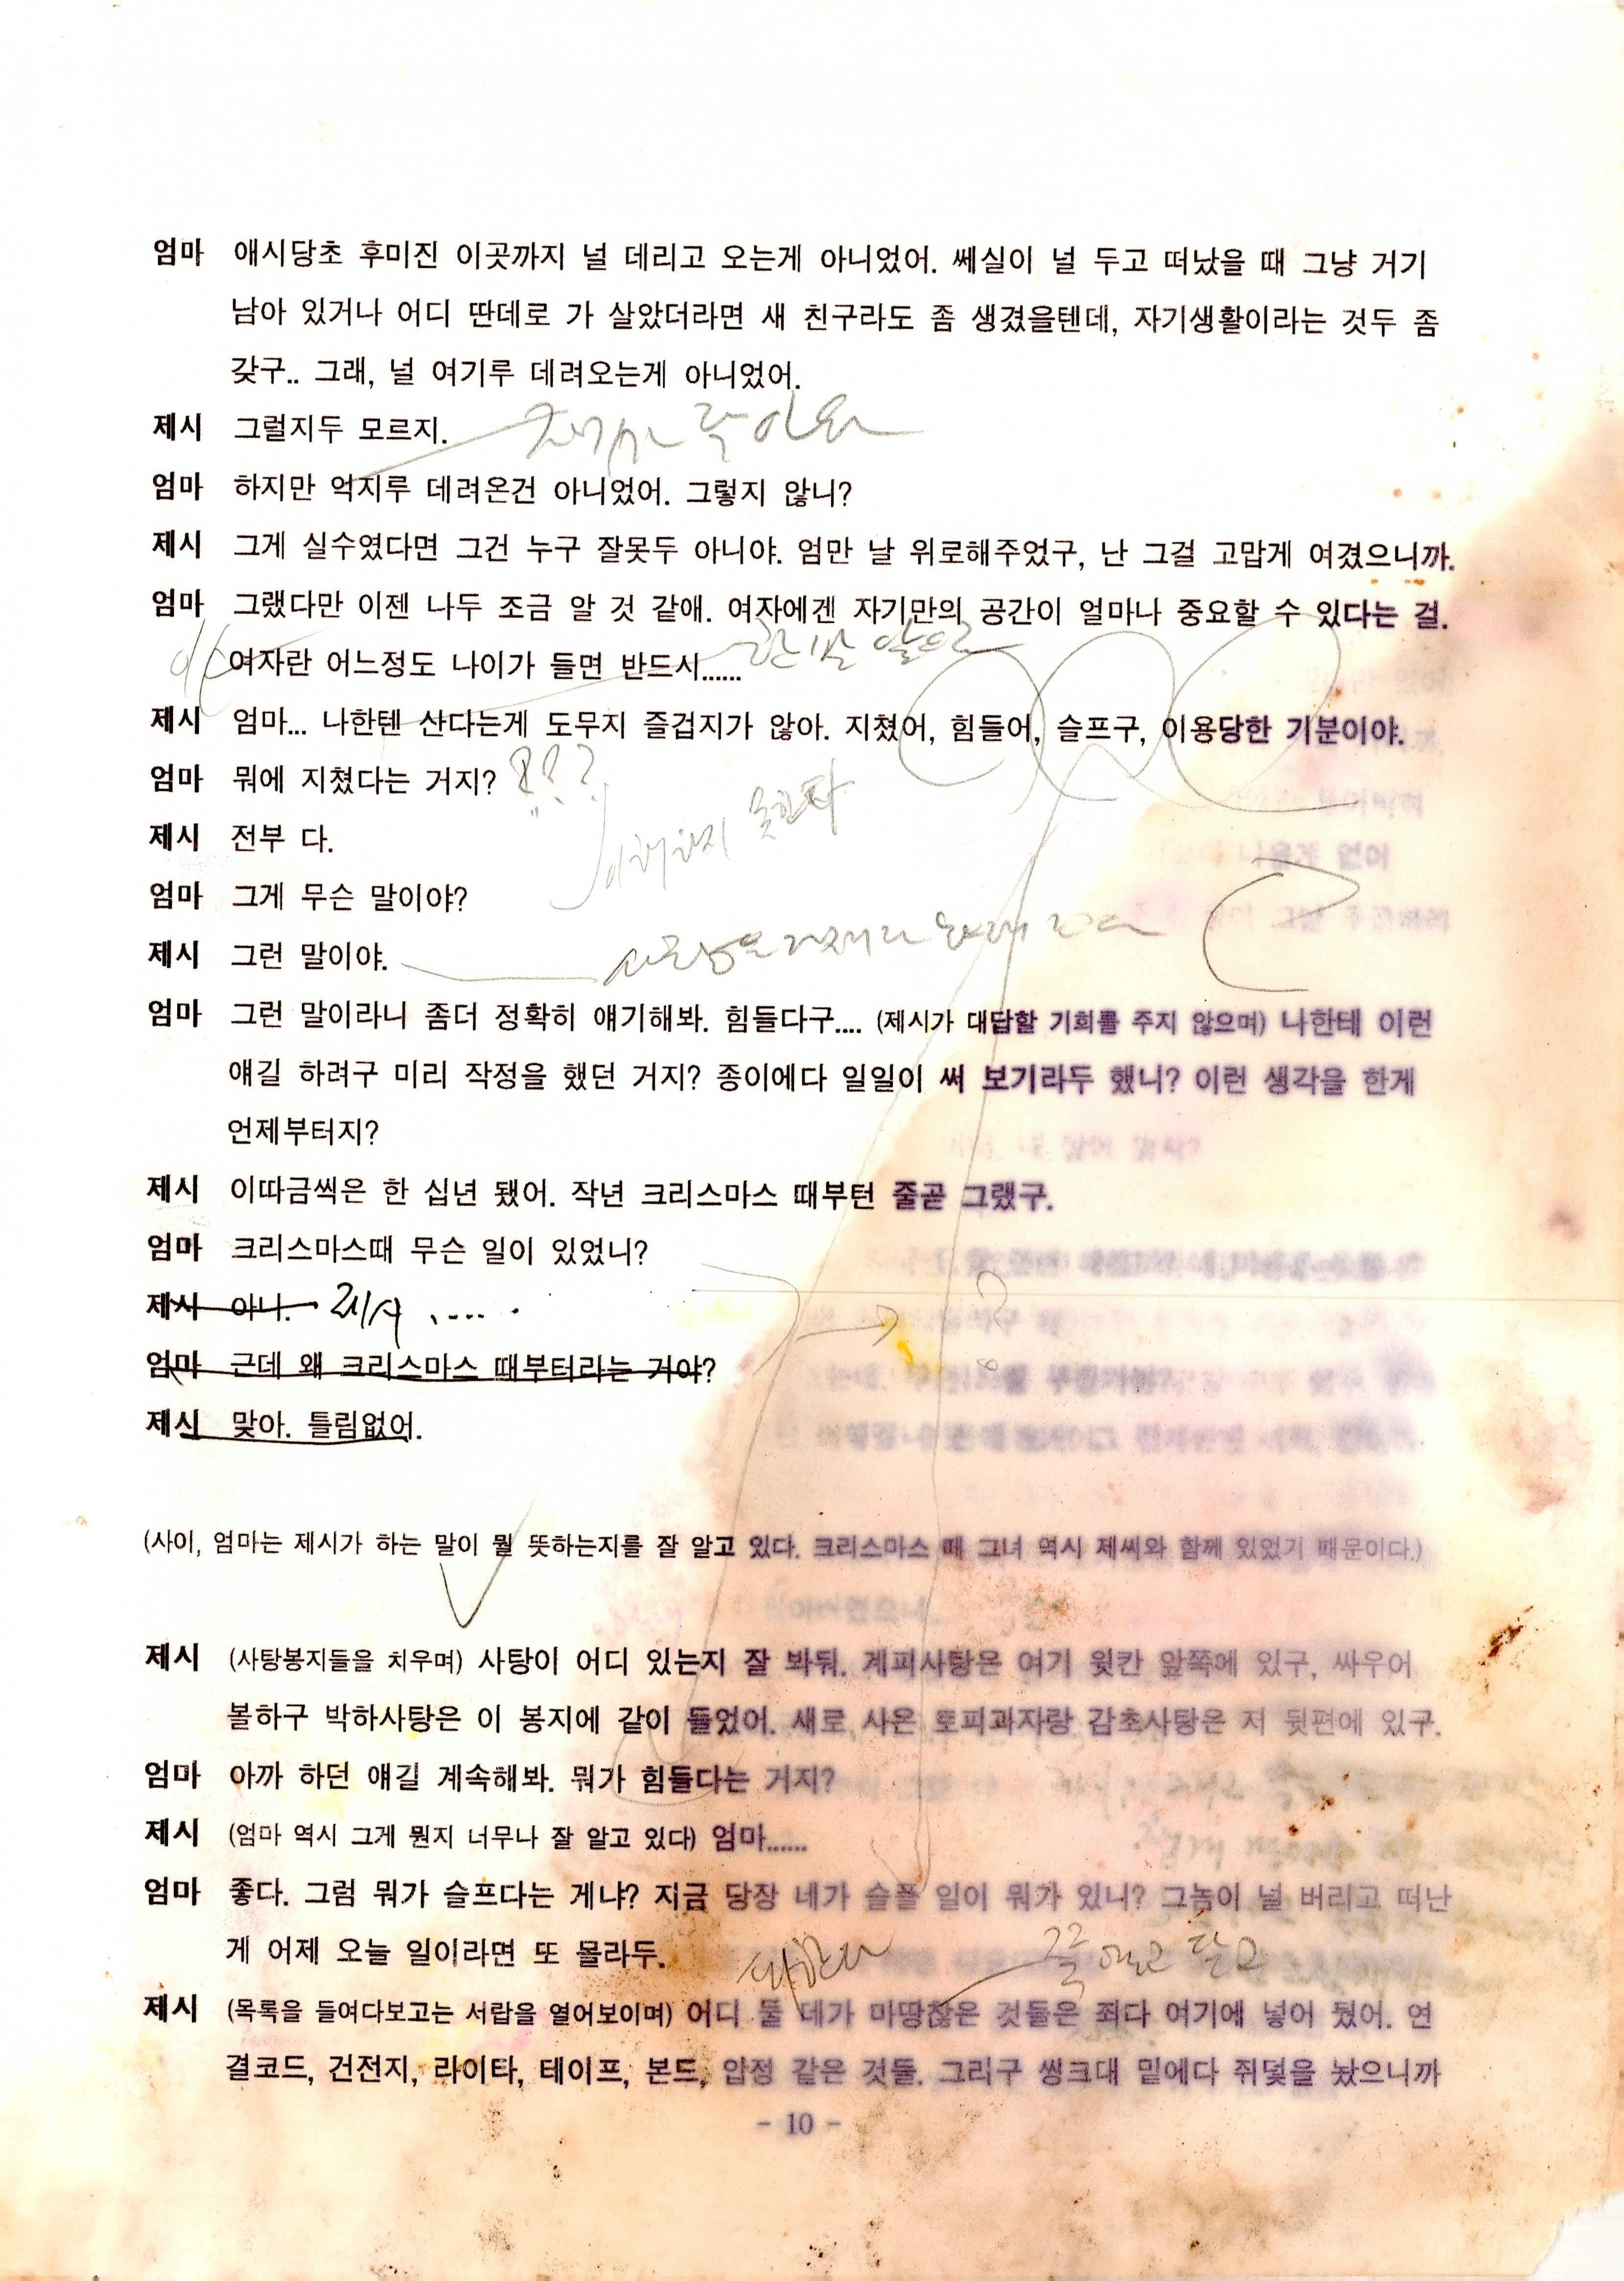 엄마 애시당초 후미진 이곳까지 널 데리고 오는게 아니었어. 쎄실이 널 두고 떠났을 때 그냥 거기
남아 있거나 어디 딴데로 가 살았더라면 새 친구라도 좀 생겼을텐데, 자기생활이라는 것두 좀
갖구.. 그래, 널 여기루 데려오는게 아니었어.
제시 그럴지두 모르지.
엄마 하지만 억지루 데려온건 아니었어. 그렇지 않니?
제시 그게 실수였다면 그건 누구 잘못두 아니야. 엄만 날 위로해주었구, 난 그걸 고맙게 여겼으니까.
엄마 그랬다만 이젠 나두 조금 알 것 같애. 여자에겐 자기만의 공간이 얼마나 중요할 수 있다는 걸.
여자란 어느정도 나이가 들면 반드시......
제시 엄마... 나한텐 산다는게 도무지 즐겁지가 않아. 지쳤어, 힘들어, 슬프구, 이용당한 기분이야.
엄마 뭐에 지쳤다는 거지? ???
이해하지 못한다
제시 전부 다.
엄마 그게 무슨 말이야?
제시 그런 말이야.
엄마 그런 말이라니 좀더 정확히 얘기해봐. 힘들다구.... (제시가 대답할 기회를 주지 않으며) 나한테 이런
얘길 하려구 미리 작정을 했던 거지? 종이에다 일일이 써 보기라두 했니? 이런 생각을 한게
언제부터지?
제시 이따금씩은 한 십년 됐어. 작년 크리스마스 때부턴 줄곧 그랬구.
엄마 크리스마스때 무슨 일이 있었니?
제시 아니. 제시 .....
엄마 근데 왜 크리스마스 때부터라는 거야? ?
제시 맞아. 틀림없어.
(사이, 엄마는 제시가 하는 말이 뭘 뜻하는지를 잘 알고 있다. 크리스마스 때 그녀 역시 제씨와 함께 있었기 때문이다.)
제시 (사탕봉지들을 치우며) 사탕이 어디 있는지 잘 봐둬. 계피사탕은 여기 윗칸 앞쪽에 있구, 싸우어
볼하구 박하사탕은 이 봉지에 같이 들었어. 새로 사온 토피과자랑 감초사탕은 저 뒷편에 있구.
엄마 아까 하던 얘길 계속해봐. 뭐가 힘들다는 거지?
제시 (엄마 역시 그게 뭔지 너무나 잘 알고 있다) 엄마......
엄마 좋다. 그럼 뭐가 슬프다는 게냐? 지금 당장 네가 슬플 일이 뭐가 있니? 그놈이 널 버리고 떠난
게 어제 오늘 일이라면 또 몰라두.
제시 (목록을 들여다보고는 서랍을 열어보이며) 어디 둘 데가 마땅찮은 것들은 죄다 여기에 넣어 뒀어. 연
결코드, 건전지, 라이타, 테이프, 본드, 압정 같은 것들. 그리구 씽크대 밑에다 쥐덫을 놨으니까
- 10 -